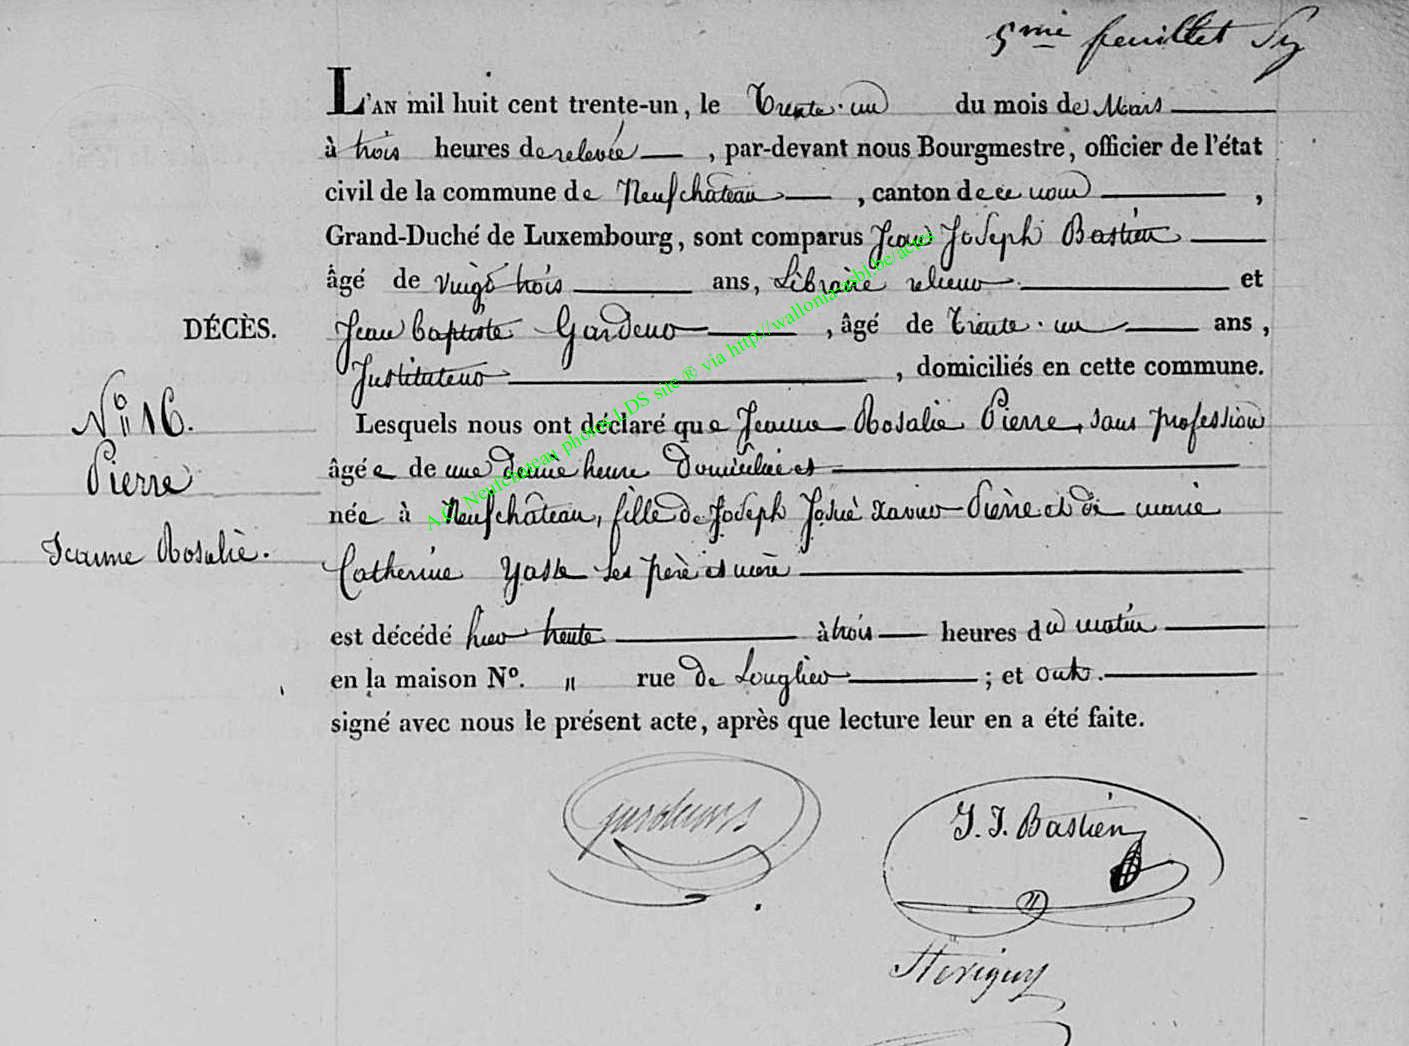 5me feuillet
L'AN mil huit cent trente-un, le Trente-un du mois de Mars
à trois heures de relevée, par-devant nous Bourgmestre, officier de l'état
civil de la commune de Neufchâteau, canton de ce nom,
Grand-Duché de Luxembourg, sont comparus Jean Joseph Bastien
âgé de vingt trois ans, Libraire relieur et
Jean baptiste Gardeur, âgé de Trente-un ans,
Instituteur, domiciliés en cette commune.
DÉCÈS.
N° 16.
Pierre
Jeanne Rosalie.
Lesquels nous ont déclaré que Jeanne Rosalie Pierre, sans profession
âgée de une demie heure Domiciliée et
née à Neufchâteau, fille de Joseph Josué xavier Pierre et de marie
Catherine ses père et mère
est décédé hier trente à trois heures du matin
en la maison N°. " rue de Longlier; et ont
signé avec nous le présent acte, après que lecture leur en a été faite.
J. J. Bastien
A.C. Neufchateau photos LDS site ® via http://wallonia-asbl.be/actes